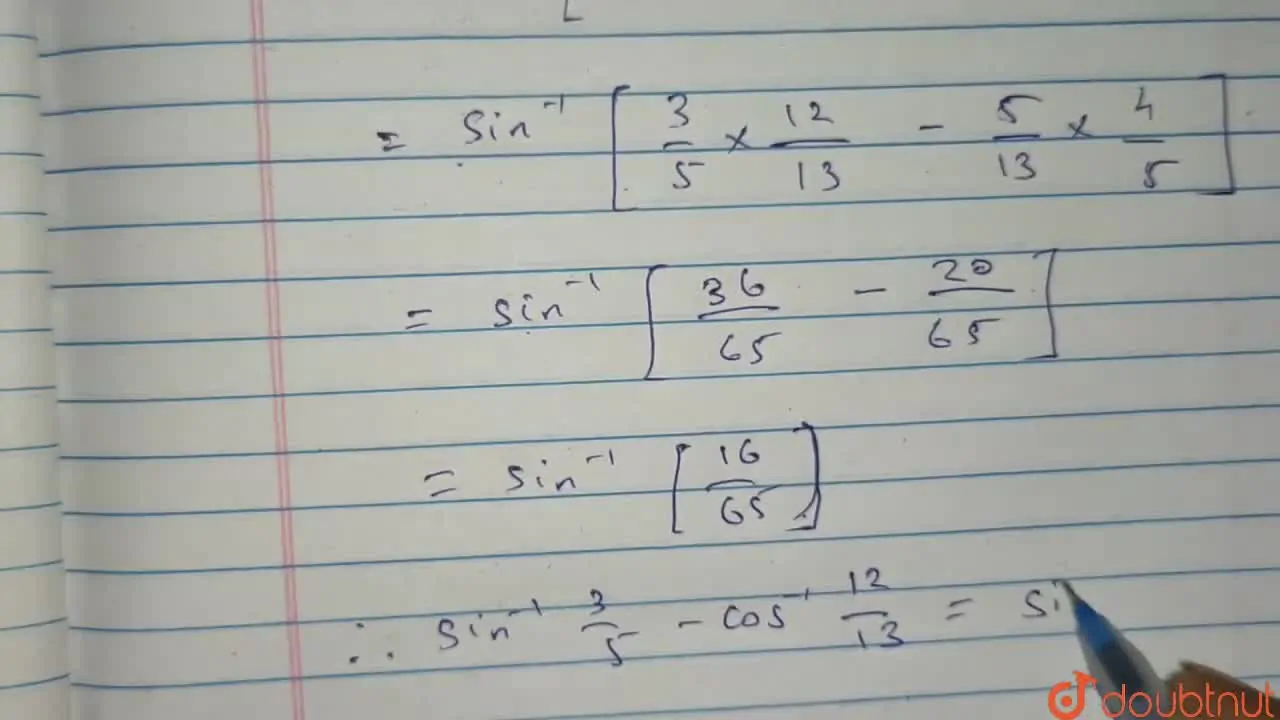 = Sin⁻¹ [ 3/5 × 12/13 - 5/13 × 4/5 ]
= sin⁻¹ [ 36/65 - 20/65 ]
= sin⁻¹ [ 16/65 ]
∴ sin⁻¹ 3/5 - cos⁻¹ 12/13 = si
doubtnut